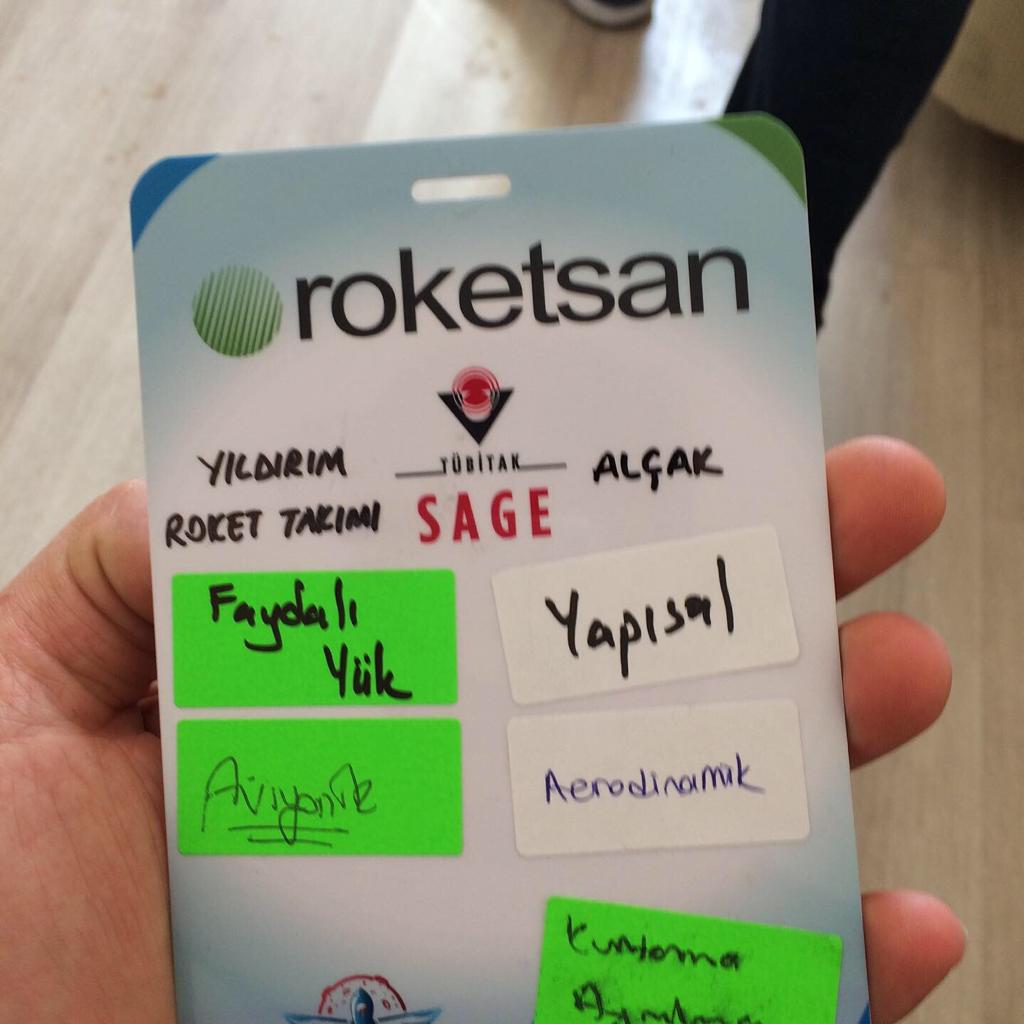 roketsan
YILDIRIM
ROKET TAKIMI
TÜBİTAK
SAGE
ALÇAK
Faydalı
Yük
Yapısal
Aviyonik
Aerodinamik
Kurtarma
Ayrılma